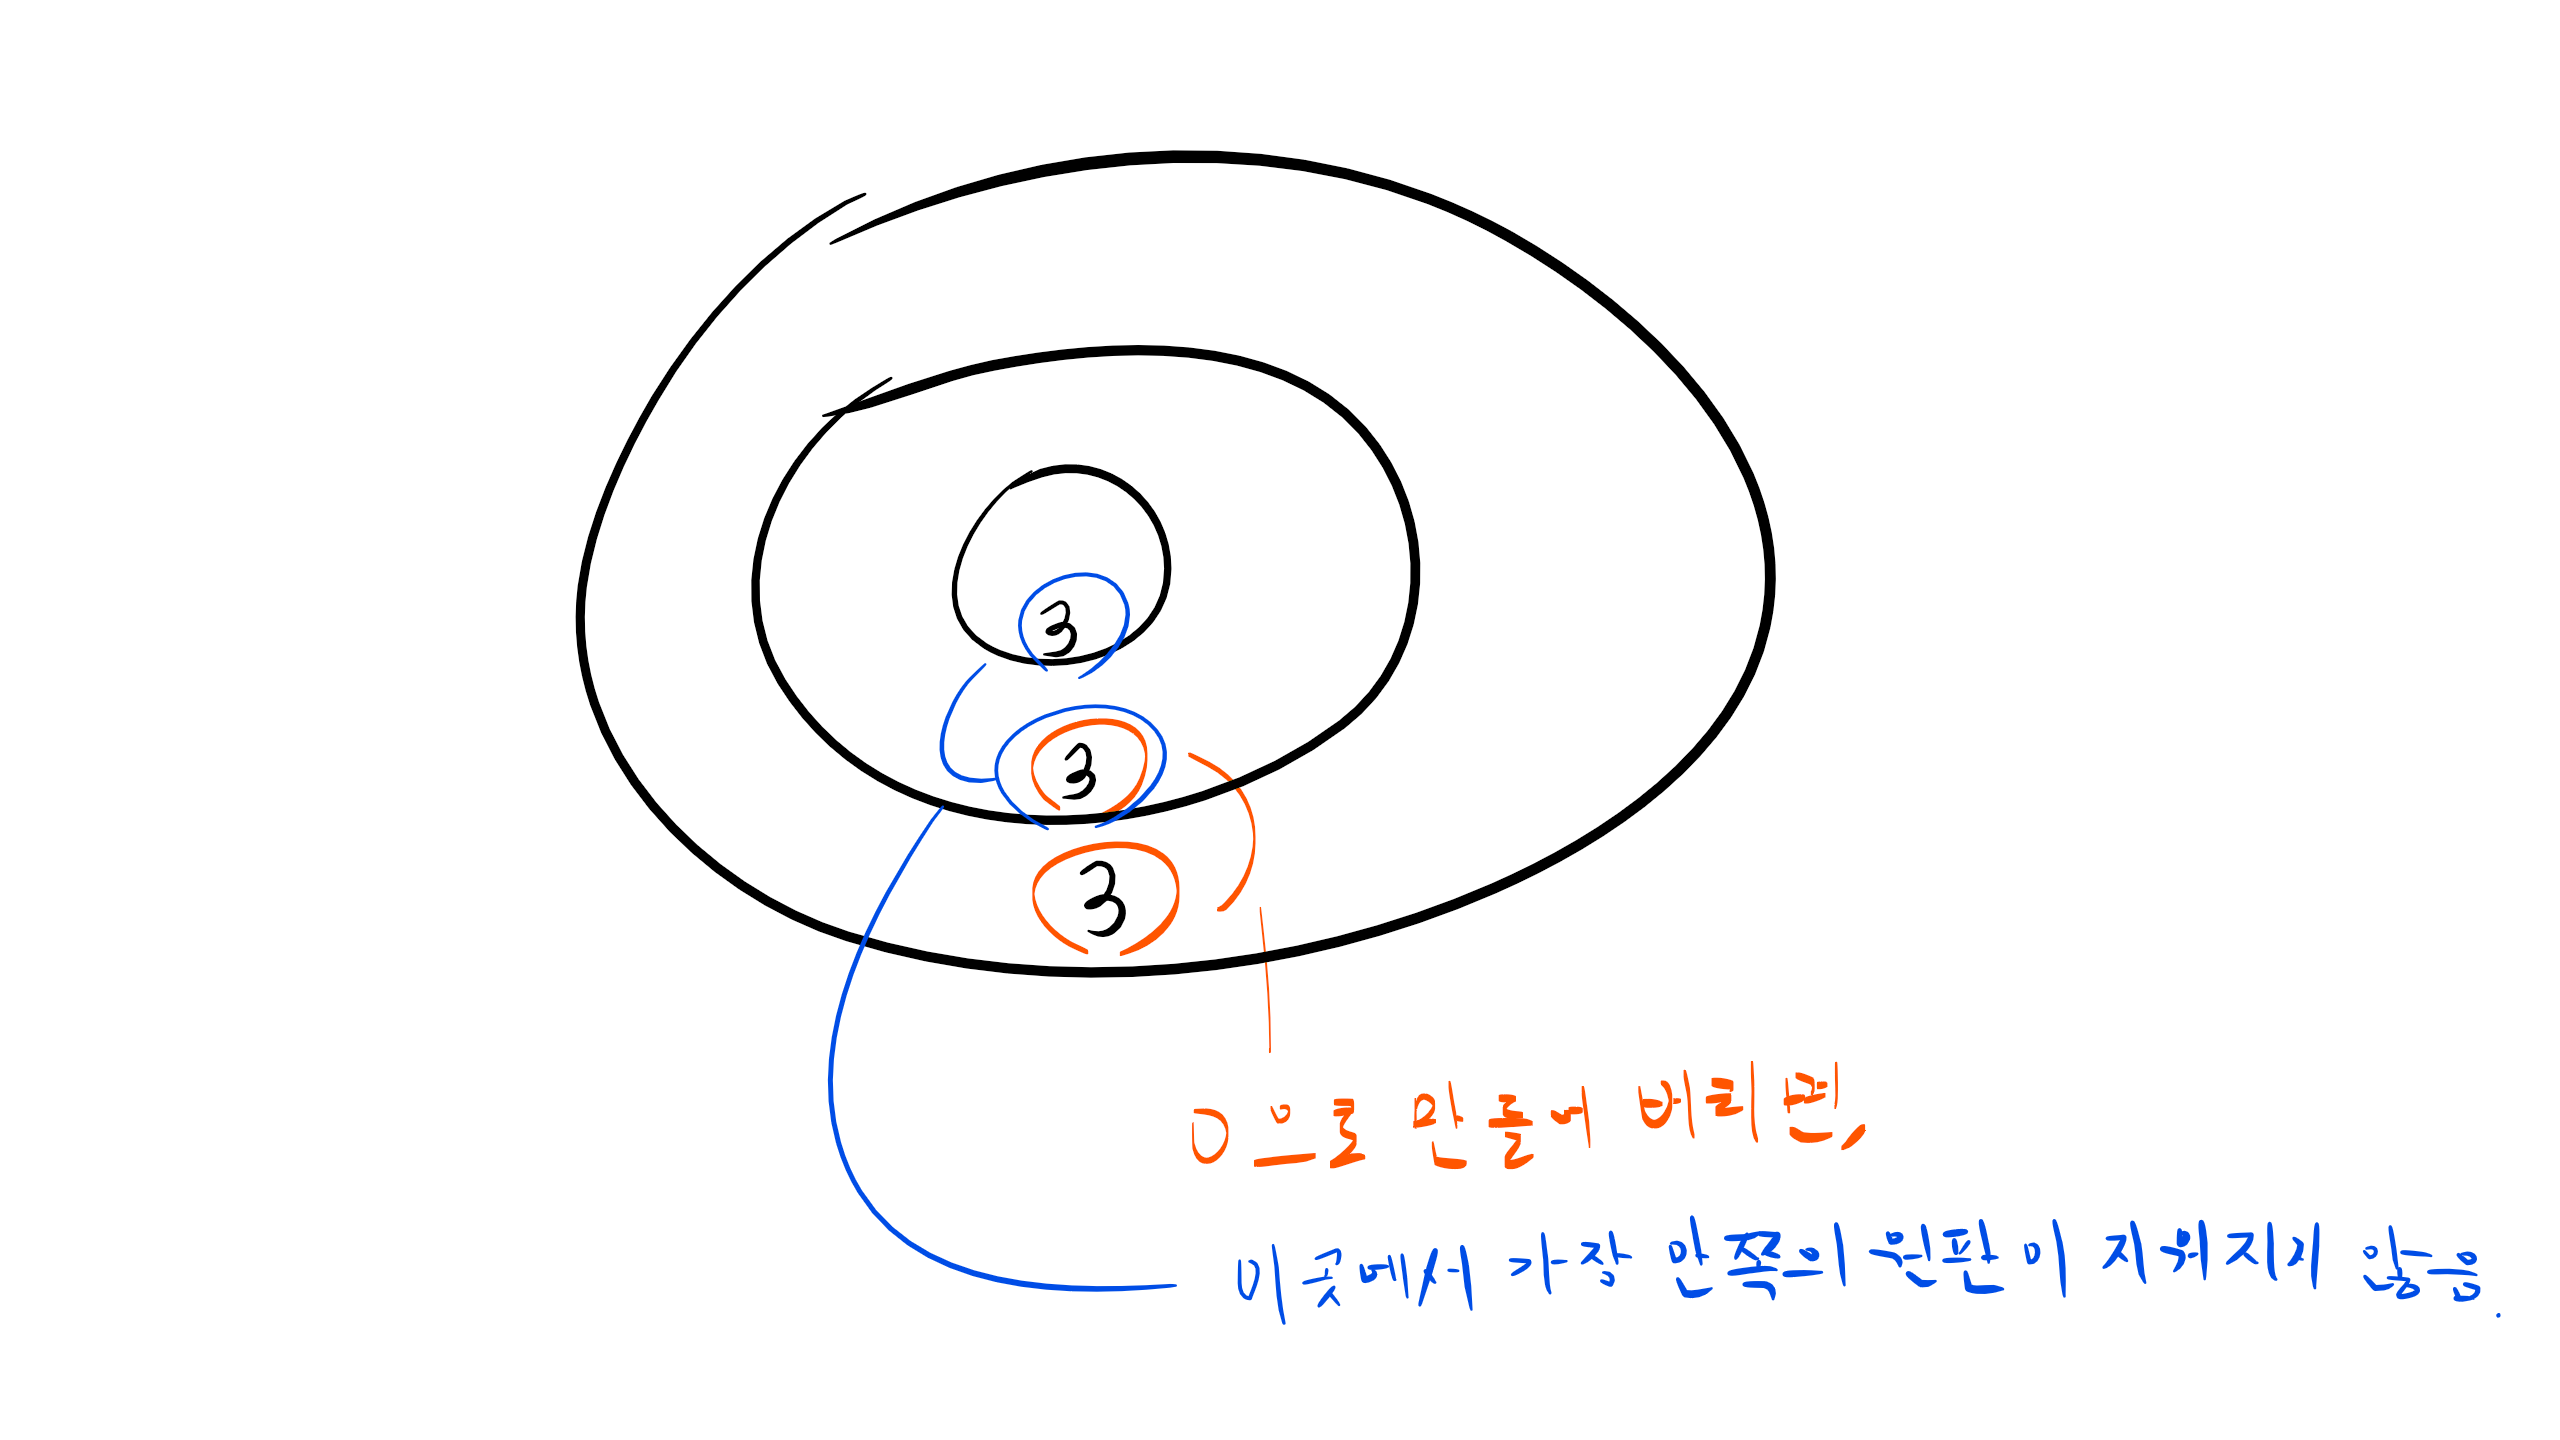 3
3
3
0으로 만들에 버리면,
이 곳에서 가장 안쪽의 원판이 지워지지 않음.